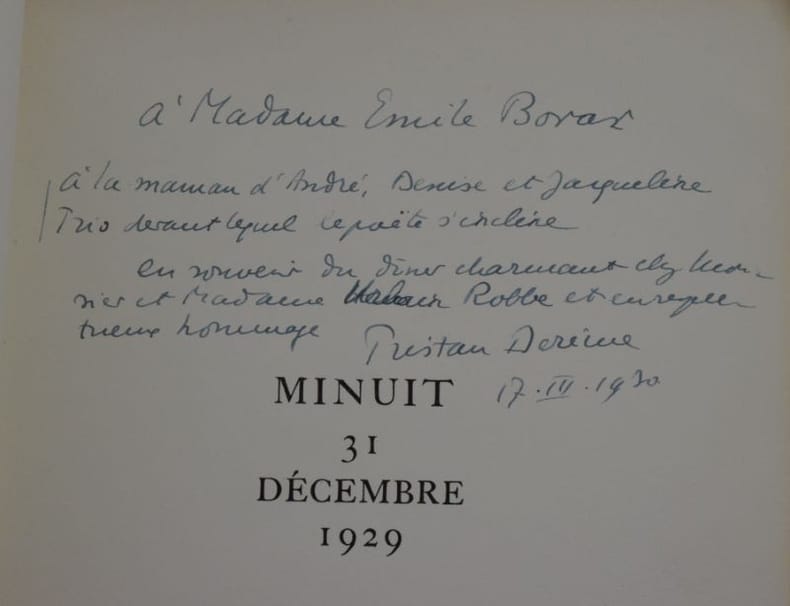 à Madame Emile Borax
à la maman d'André, Denise et Jacqueline
Trio devant lequel le poète s'incline
en souvenir du dîner charmant chez Mon-
sieur et Madame Robbe et en respec-
tueux hommage
Tristan Derème
17.III.1930
MINUIT
31
DÉCEMBRE
1929